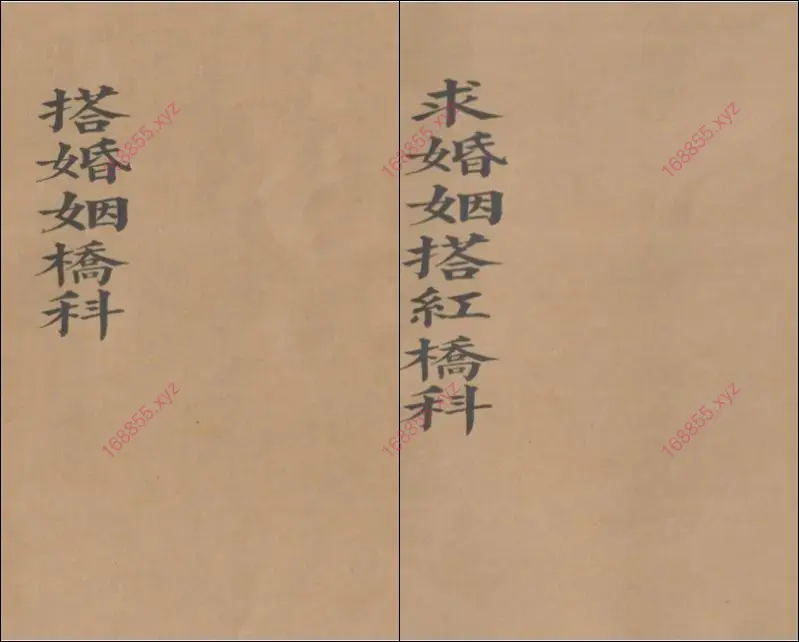 搭婚姻橋科
求婚姻搭紅橋科
168855.xyz
168855.xyz
168855.xyz
168855.xyz
168855.xyz
168855.xyz